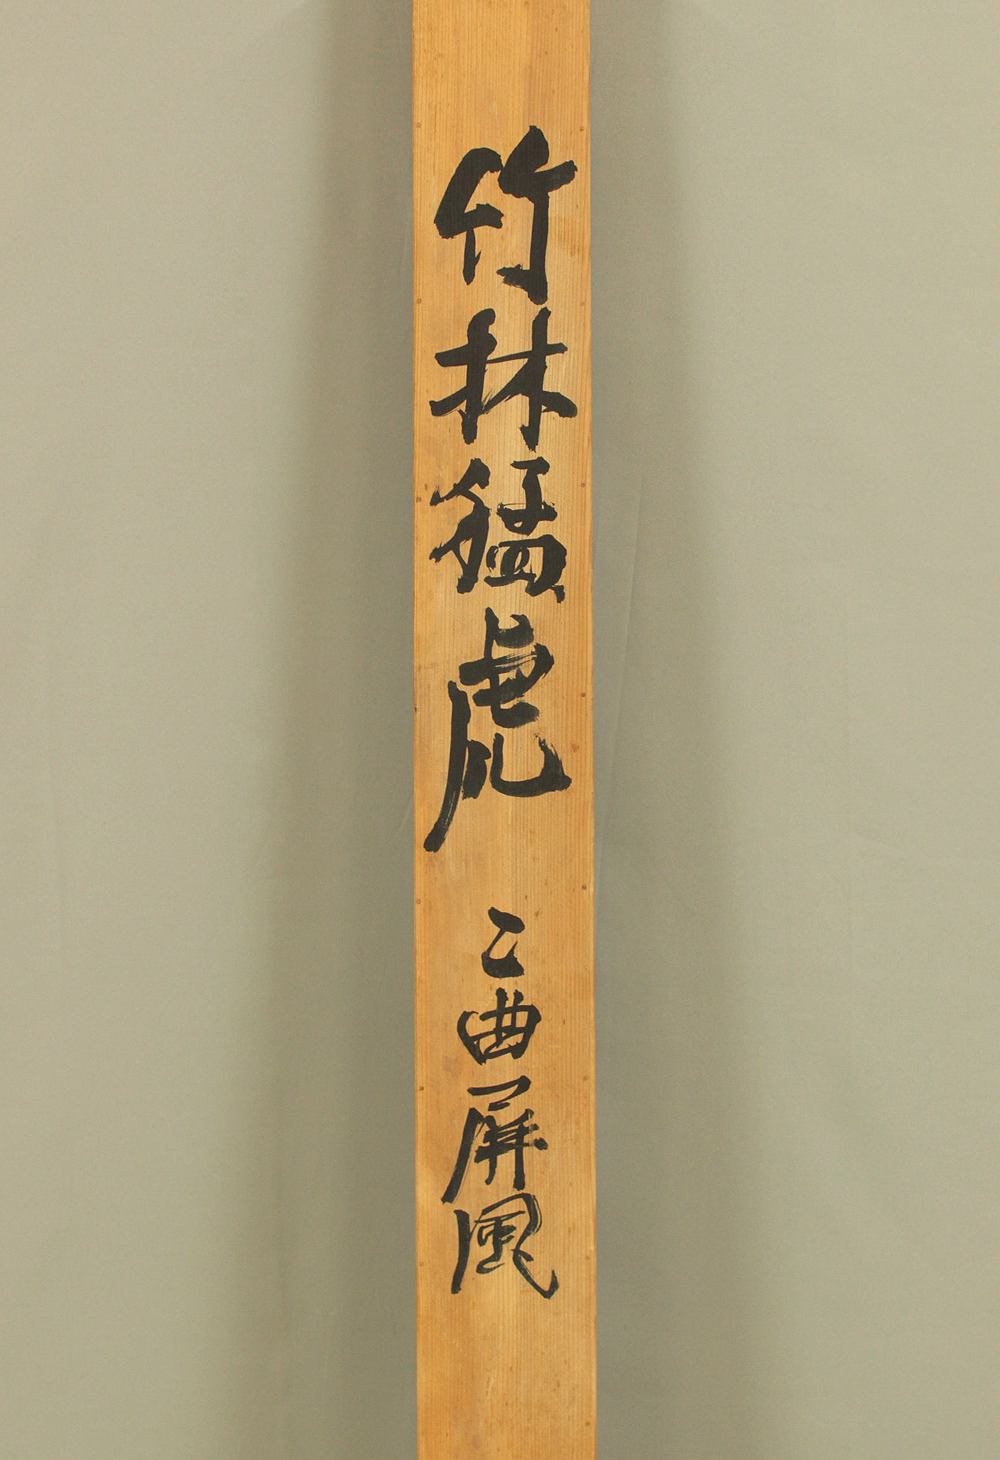 竹林猛虎 二曲屏風